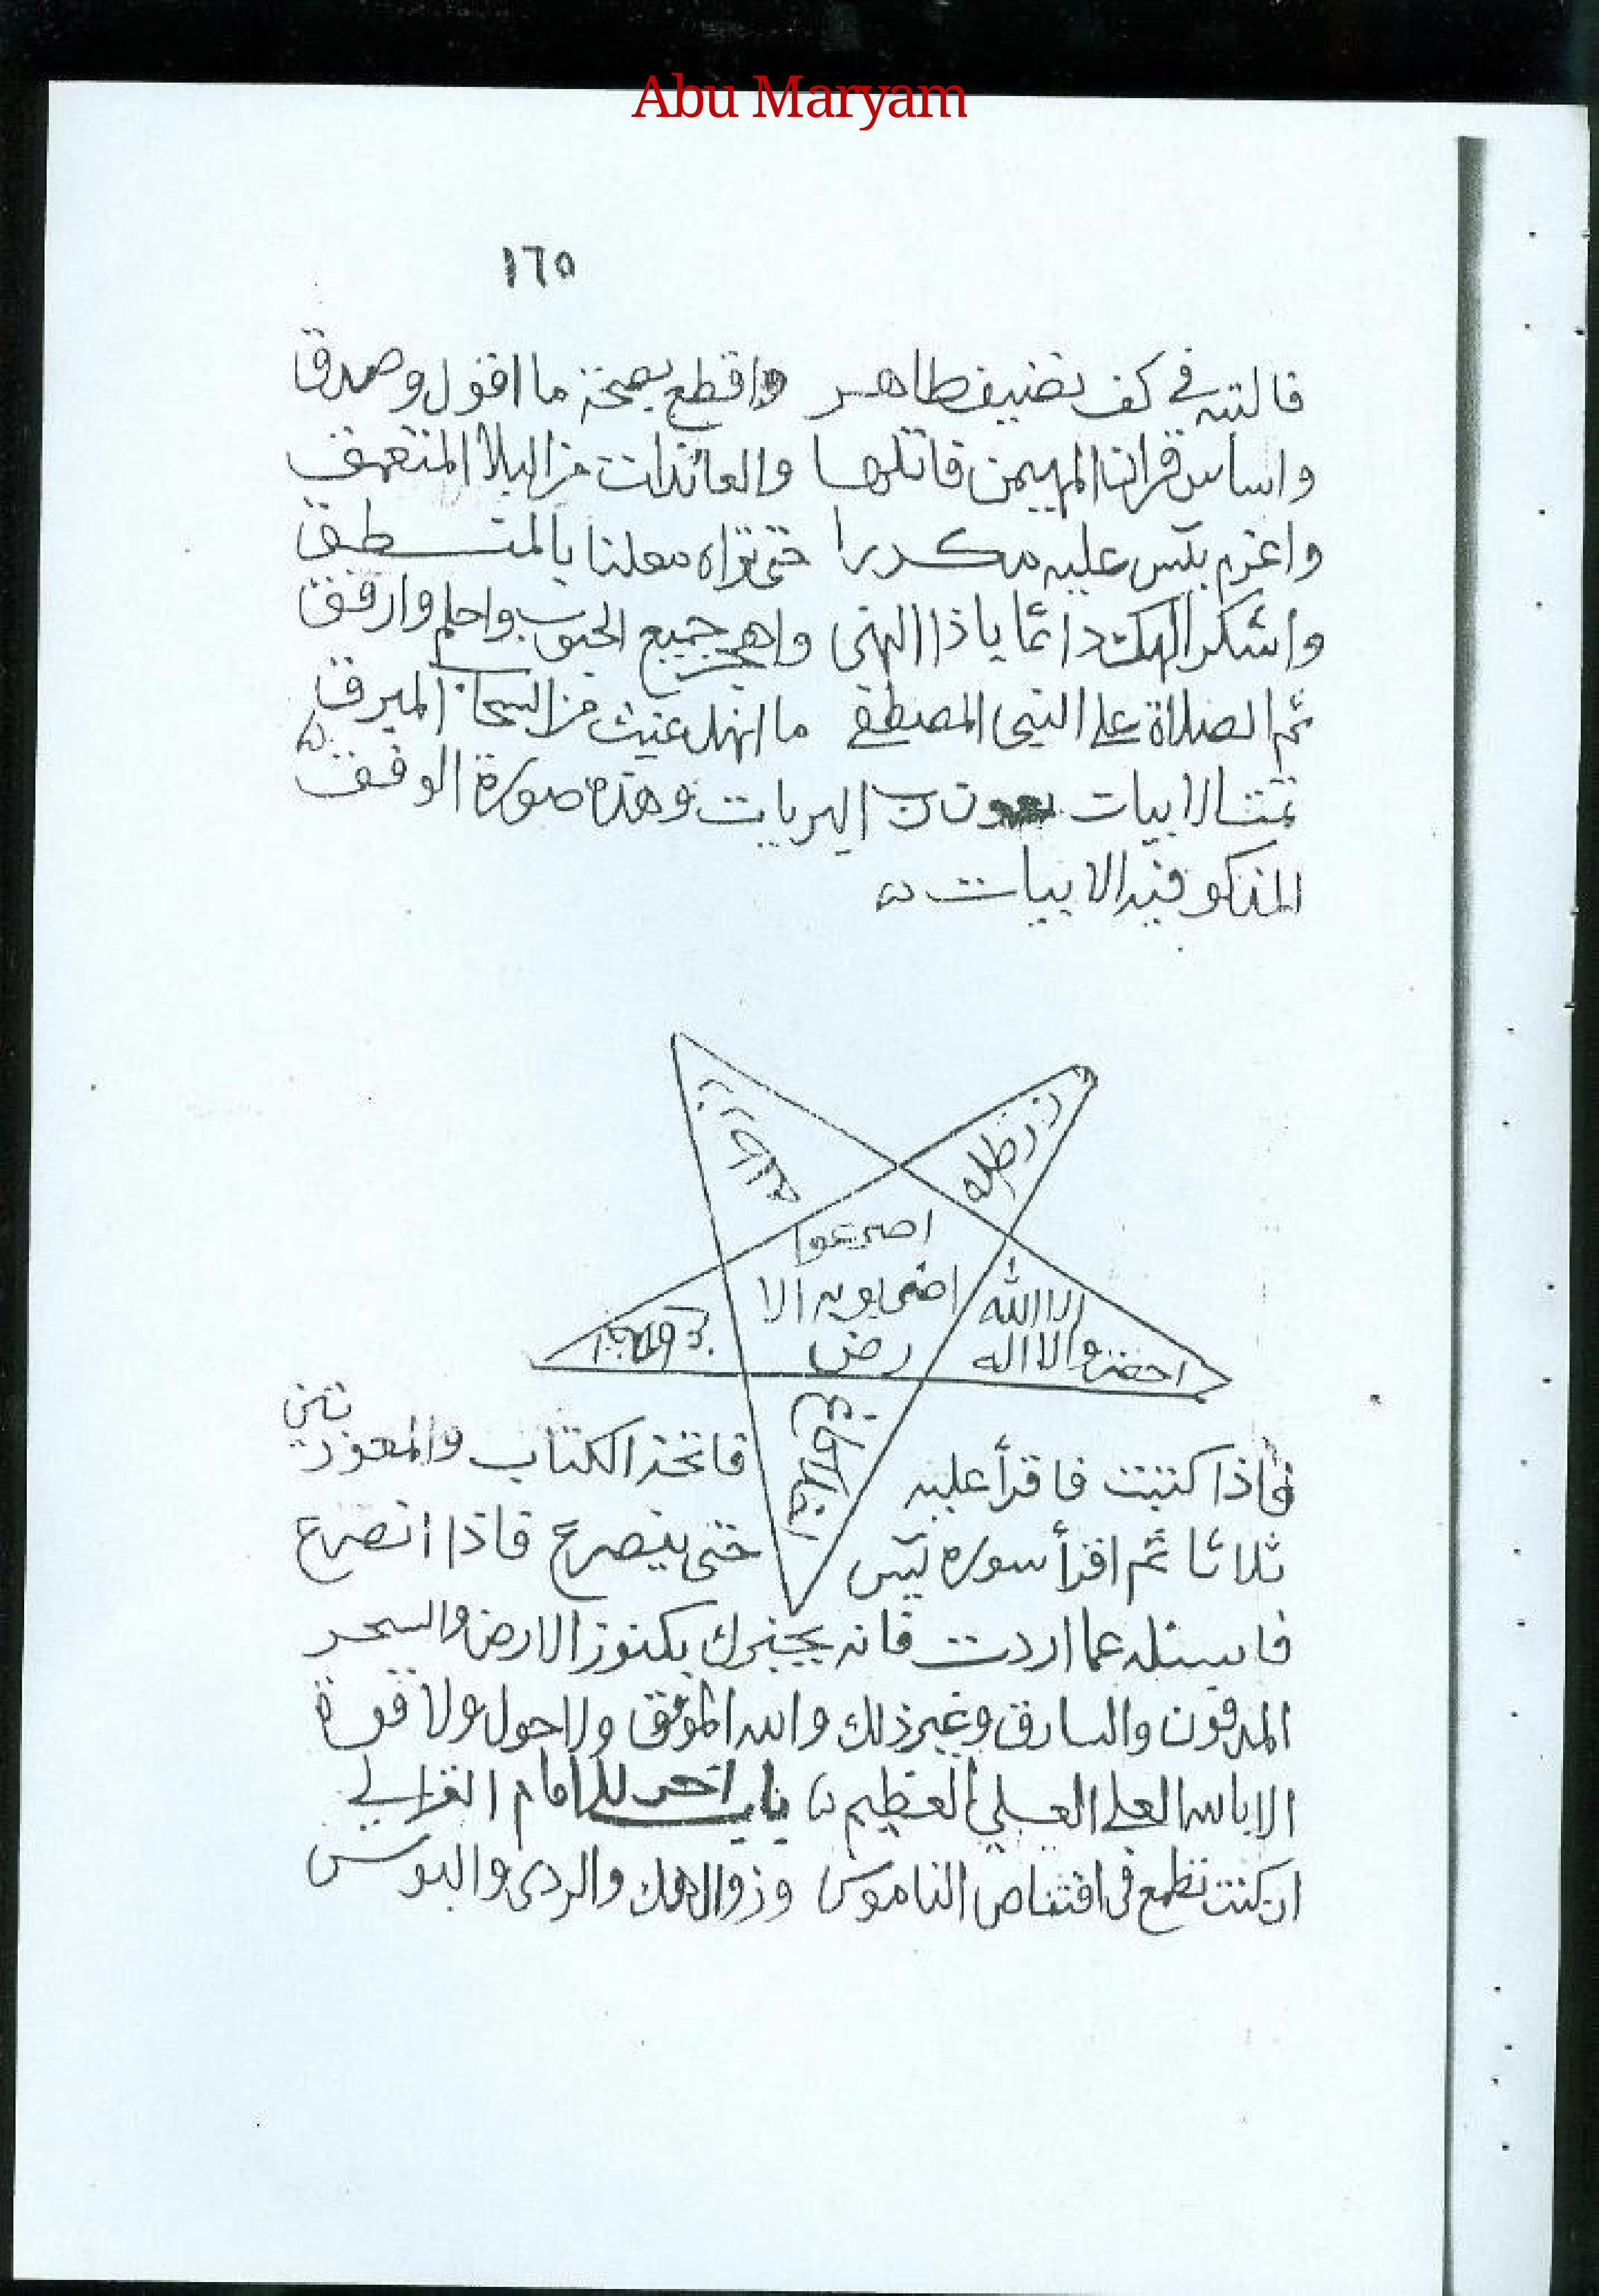 Abu Maryam
١٦٥
فالتبه في كف نضيف طاهر واقطع بصحة ما اقول وصدق
واساس قران المهيمن فاتلها والعائذات من البلا المتعمق
واعزم بيس عليه مكررا حتى تراه معلنا بالمنطق
واشكر الهك دائما ياذا النهى واهجر جميع الحوب واحلم وارفق
ثم الصلاة على النبي المصطفى ما انهل غيث من السحاب المبرق
تمت الابيات بعون رب البريات وهذه صورة الوفق
المذكو فيه الابيات
اصرعوا
الا
رض
الا الله
الا اله
فاذا كتبت فاقرأ عليه فاتحة الكتاب والمعوذتين
ثلاثا ثم اقرأ سورة يس حتى ينصرع فاذا انصرع
فاسئله عما اردت فانه يخبرك بكنوز الارض والسحر
المدفون والسارق وغير ذلك والله الموفق ولا حول ولا قوة
الا بالله العلي العلي العظيم باب اخر للامام الغزالي
ان كنت تطمع في اقتناص الناموس وزوال همك والردى والبوس